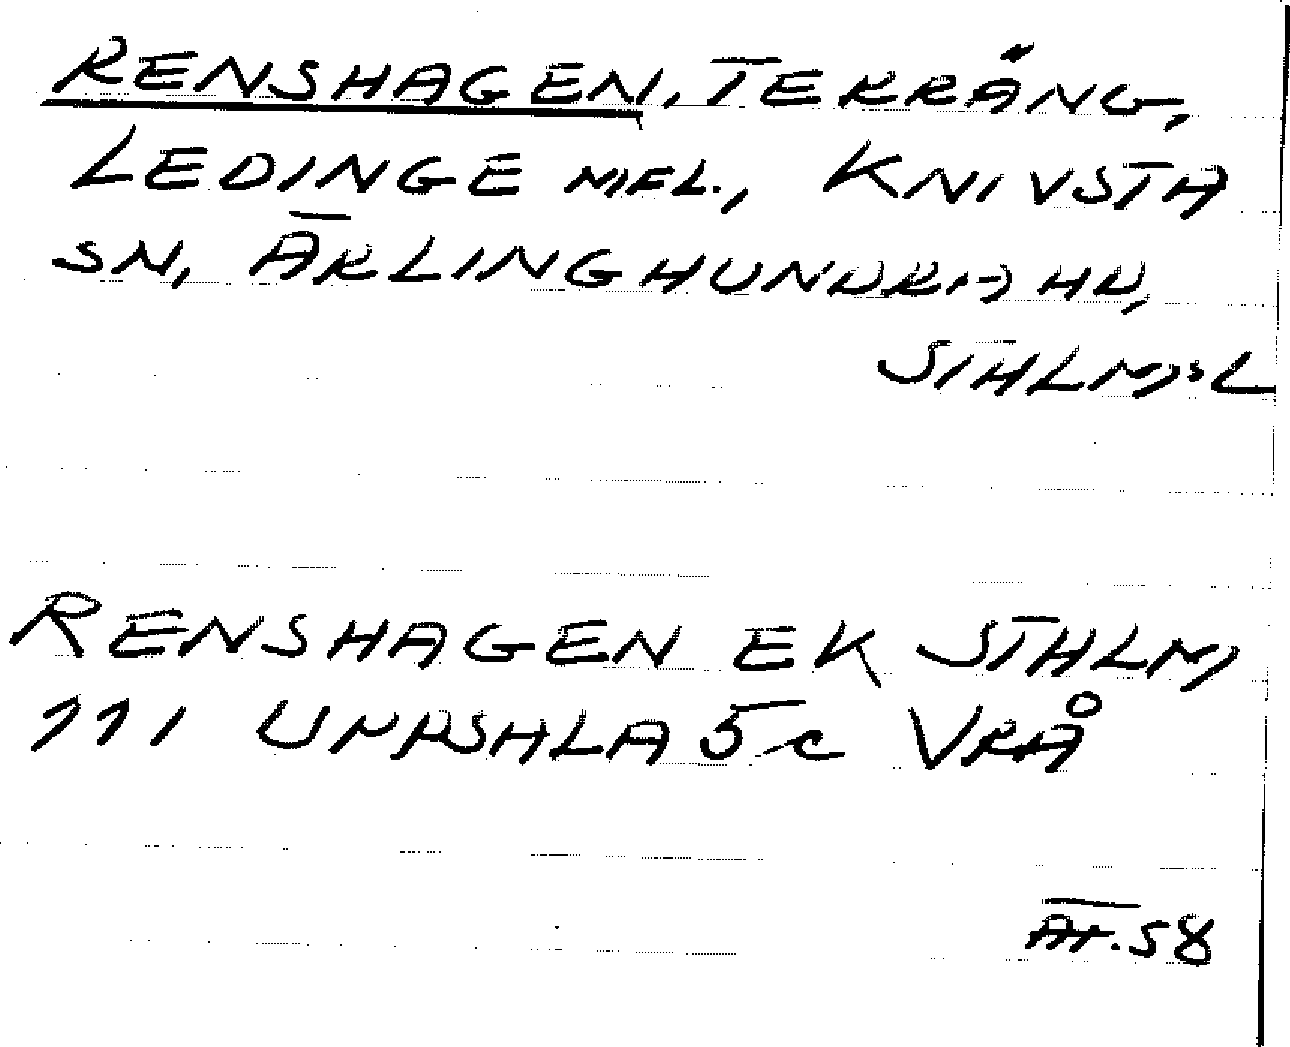 RENSHAGEN, TERRÄNG,
LEDINGE MFL., KNIVSTA
SN, ÄRLINGHUNDRA HD,
STHLMS L
RENSHAGEN EK STHLM
111 UPPSALA 5c VRÅ
ÄT. 58